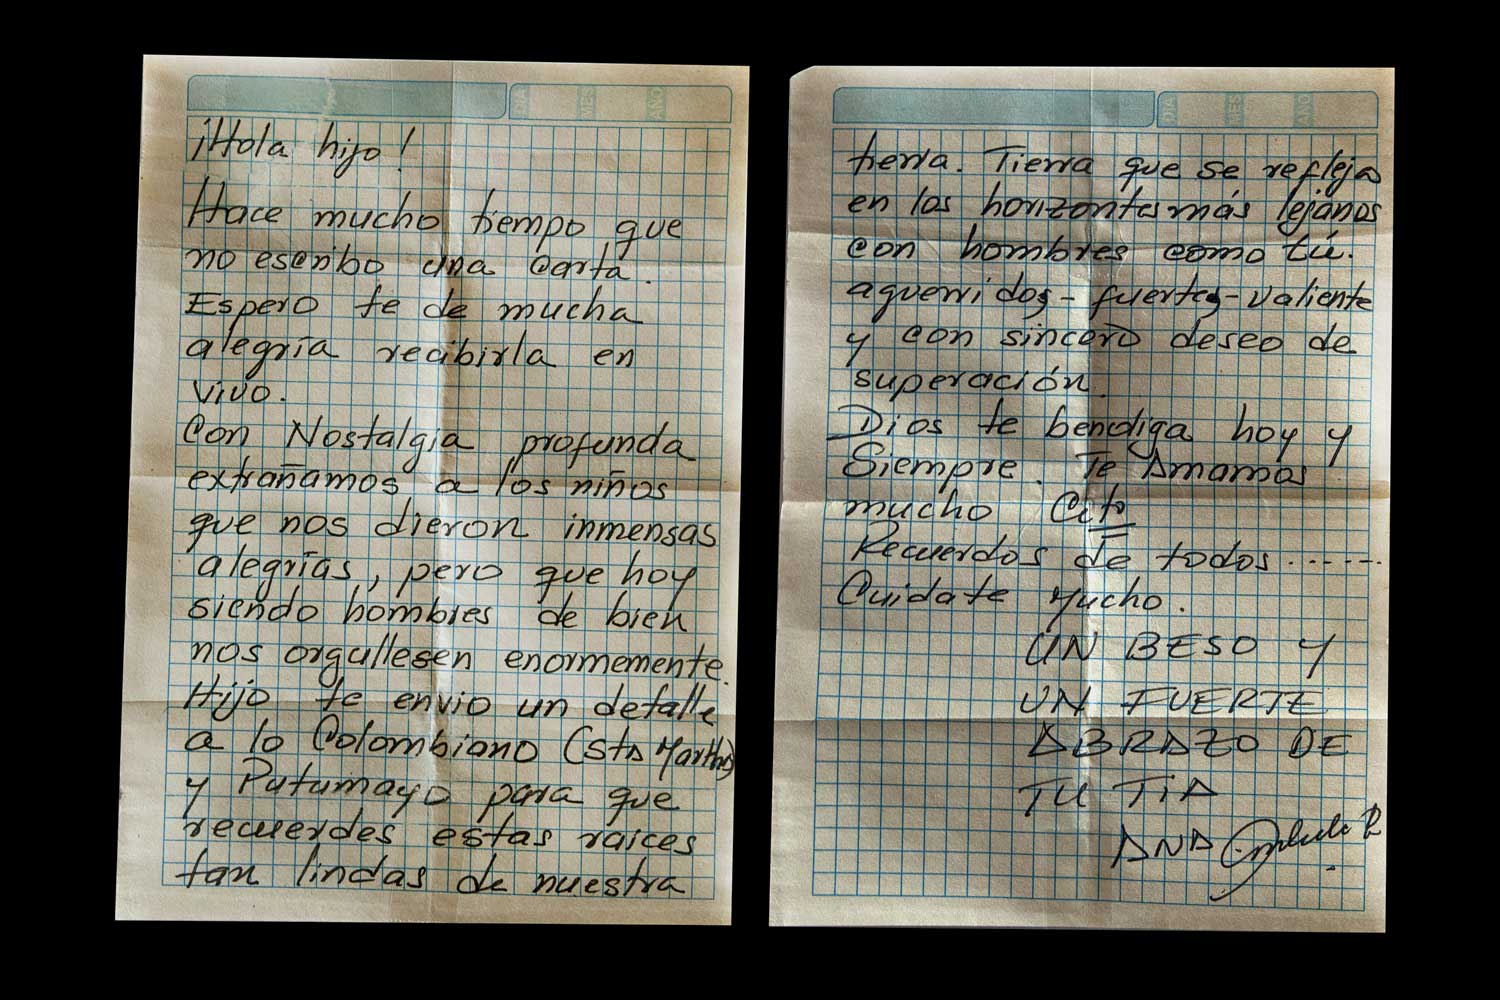 DIA MES AÑO
¡Hola hijo!
Hace mucho tiempo que
no escribo una carta.
Espero te de mucha
alegría recibirla en
vivo.
Con Nostalgia profunda
extrañamos a los niños
que nos dieron inmensas
alegrías, pero que hoy
siendo hombres de bien
nos orgullesen enormemente.
Hijo te envio un detalle
a lo Colombiano (Sta Martha)
y Putumayo para que
recuerdes estas raices
tan lindas de nuestra
DIA MES AÑO
tierra. Tierra que se refleja
en los horizontes más lejános
con hombres como tú.
aguerridos - fuertes - valiente
y con sincero deseo de
superación.
Dios te bendiga hoy y
Siempre. Te Amamos
mucho
Recuerdos de todos.......
Cuidate Mucho.
UN BESO Y
UN FUERTE
ABRAZO DE
TU TIA
ANA